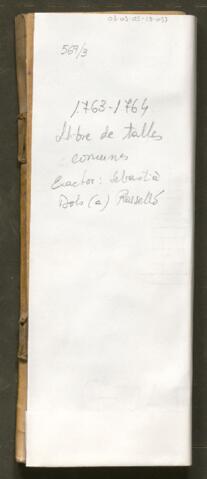 03-03-05-13-033
569/3
1763-1764
Llibre de talles
comunes
Exactor: Sebastià
Dols (a) Rosselló